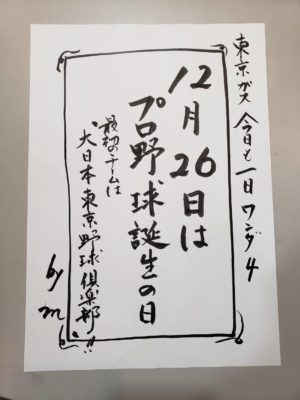 東京ガス 今日も一日ワンダ4
12月26日は
プロ野球誕生の日
最初のチームは
"大日本東京野球倶楽部"!!
by m